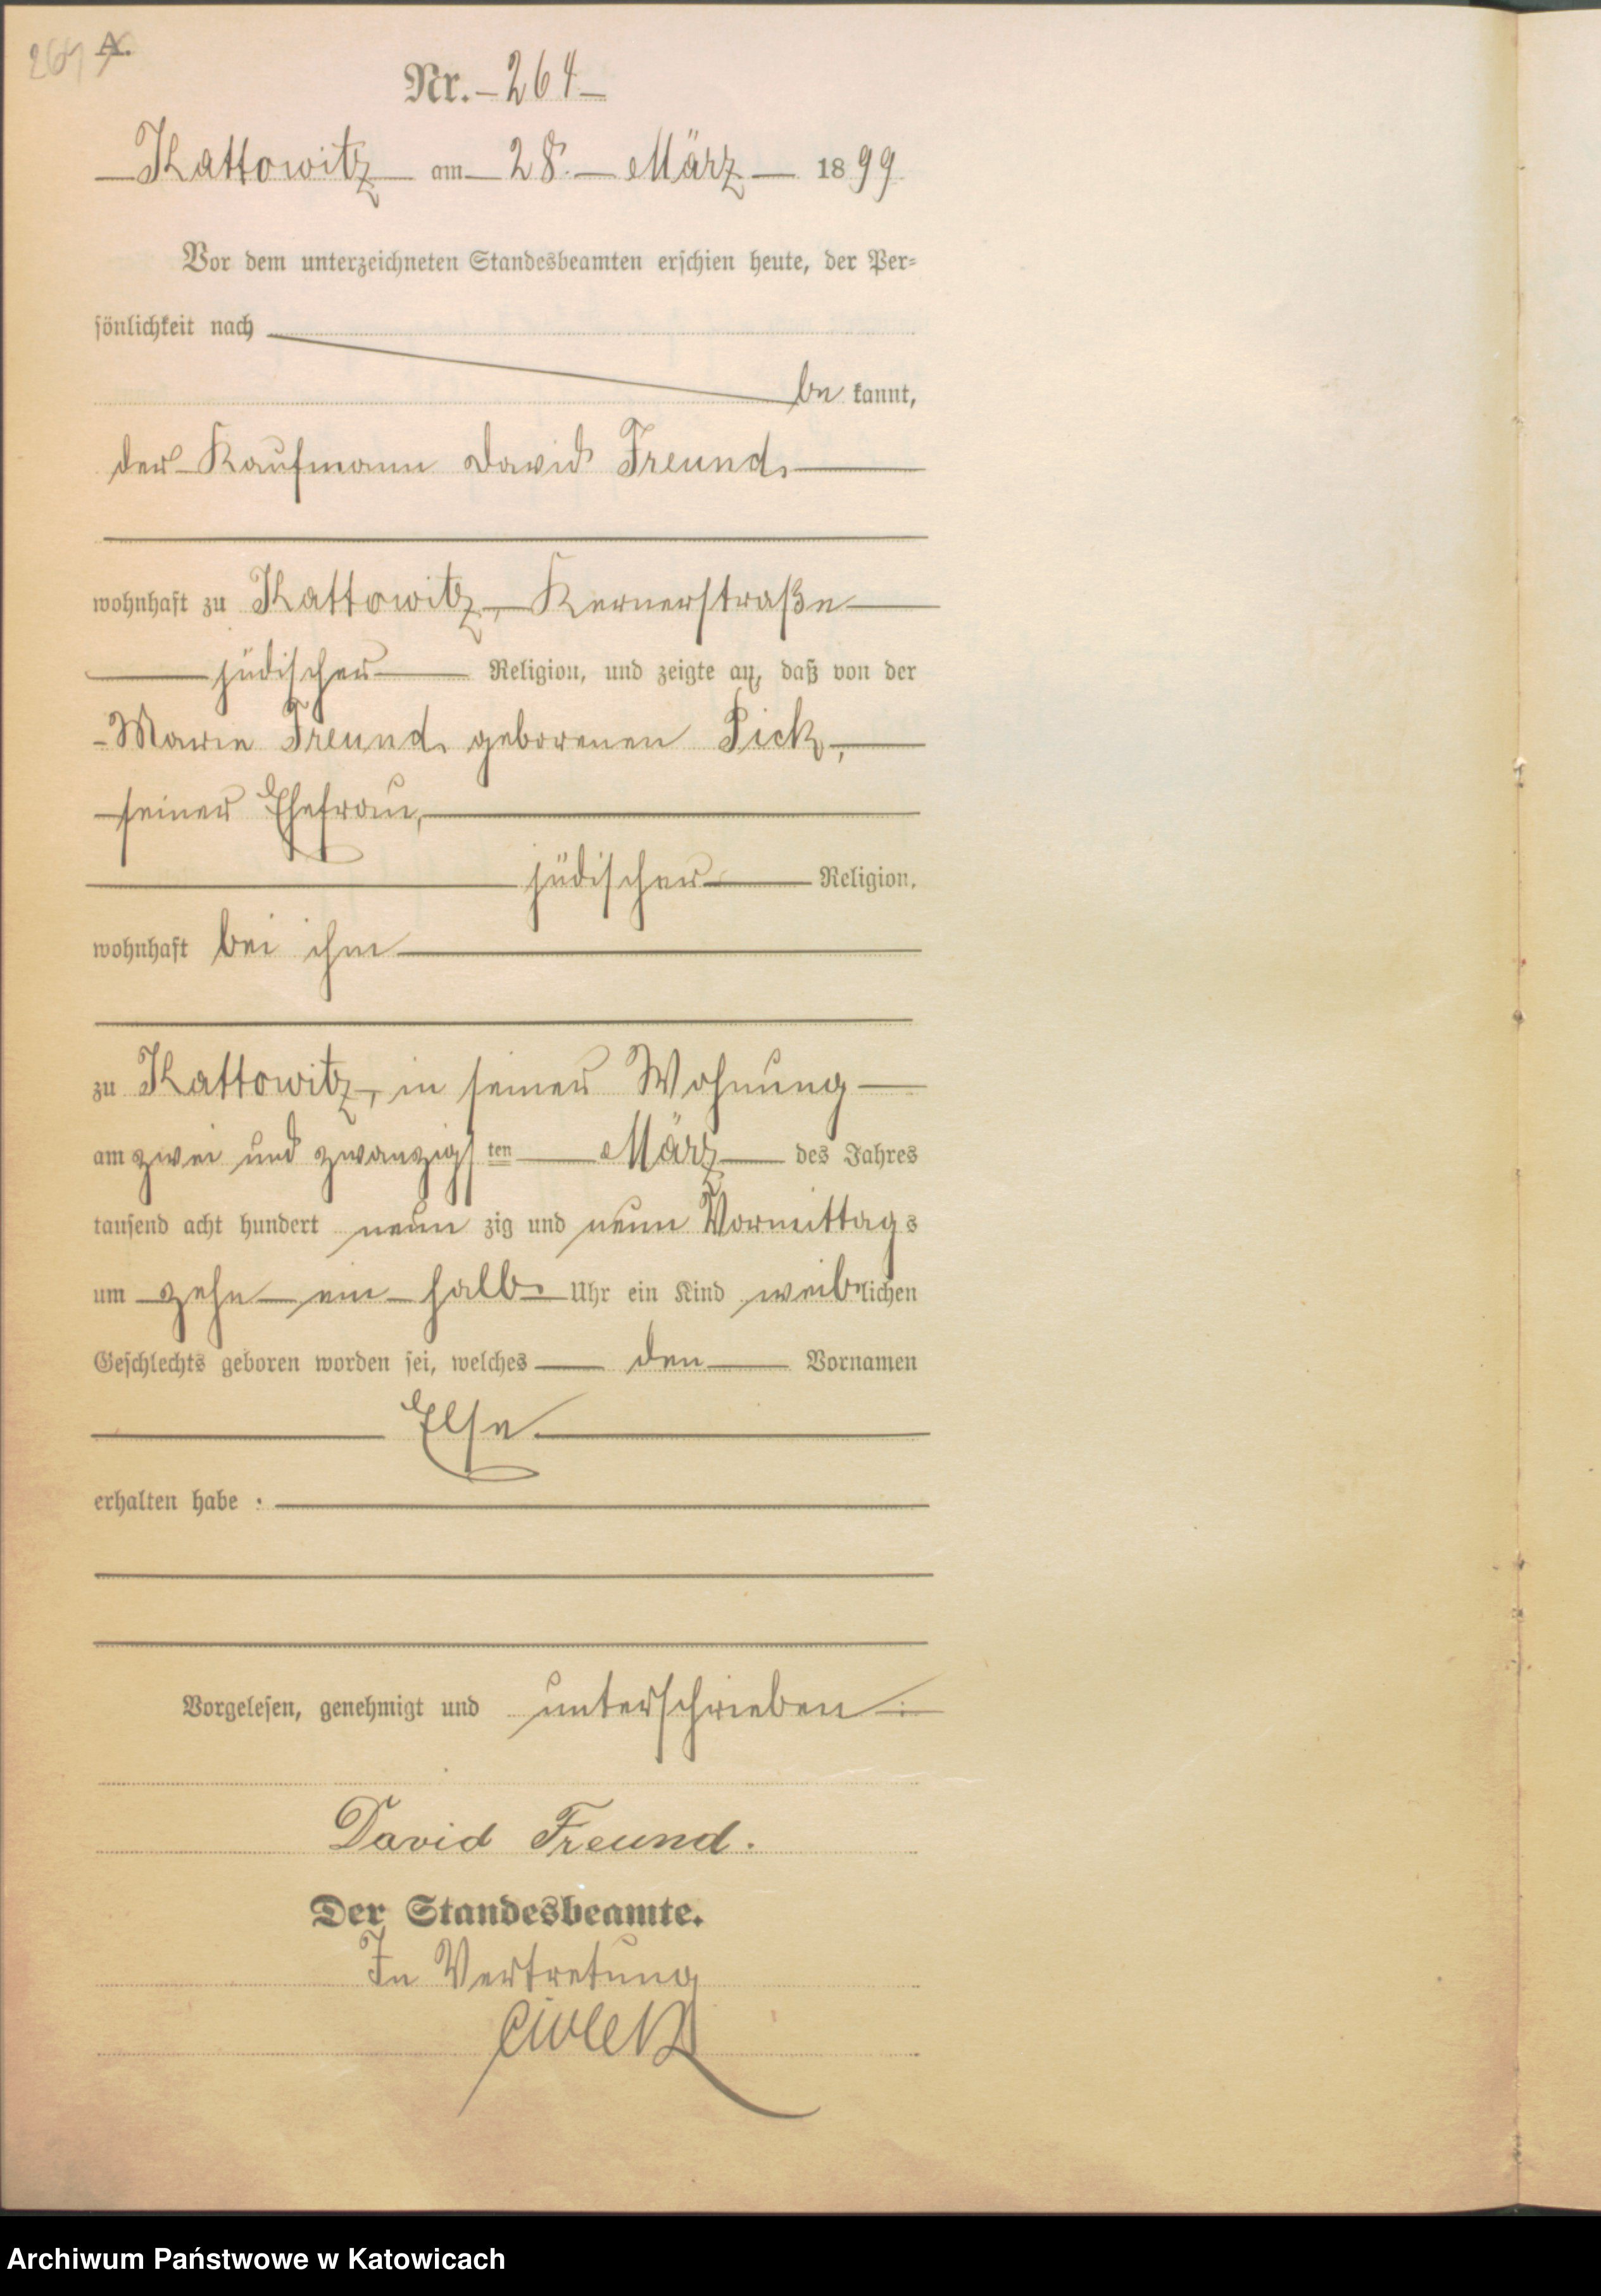 264 A.
Nr. - 264 -
Kattowitz am 28. März 1899.
Vor dem unterzeichneten Standesbeamten erschien heute, der Per-
sönlichkeit nach
be kannt,
der Kaufmann David Freund,
wohnhaft zu Kattowitz, Kernerstraße
jüdischer Religion, und zeigte an, daß von der
Marie Freund, geborenen Pick,
seiner Ehefrau,
jüdischer Religion,
wohnhaft bei ihm
zu Kattowitz, in seiner Wohnung
am zwei und zwanzigsten März des Jahres
tausend acht hundert neun zig und neun Vormittags
um zehn ein halb Uhr ein Kind weiblichen
Geschlechts geboren worden sei, welches den Vornamen
Else
erhalten habe.
Vorgelesen, genehmigt und unterschrieben:
David Freund.
Der Standesbeamte.
In Vertretung
Archiwum Państwowe w Katowicach